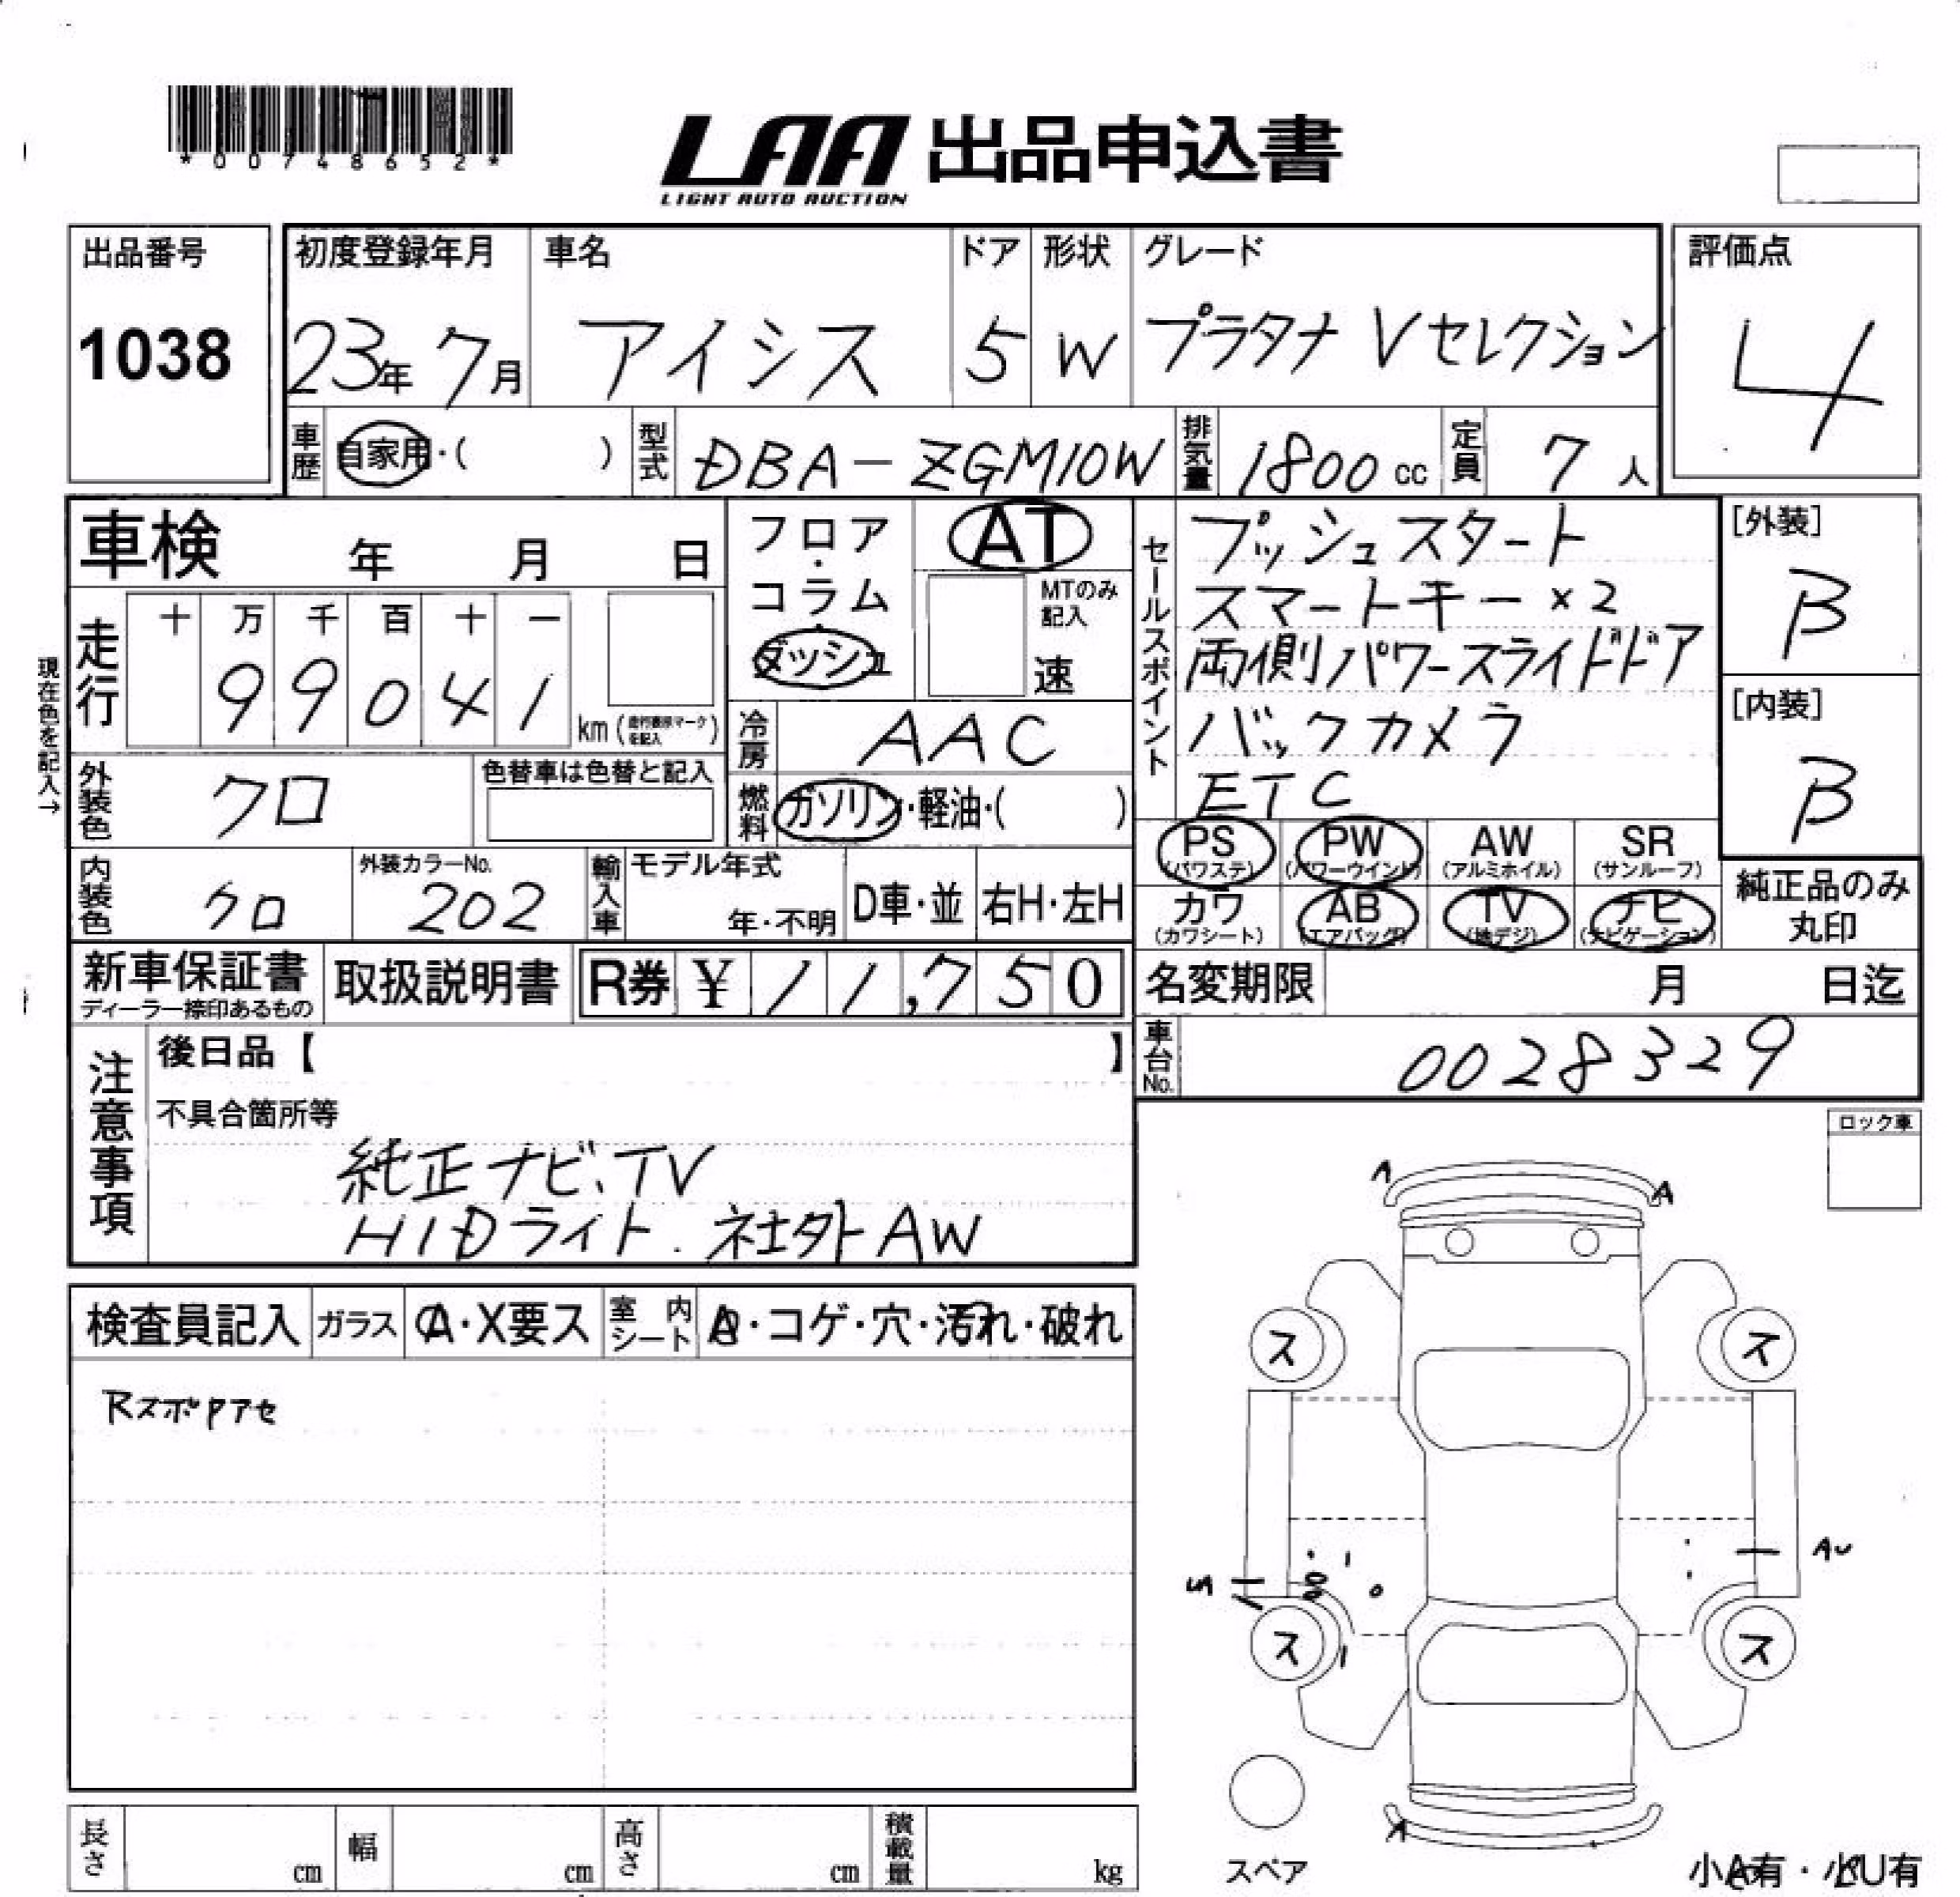 *00748652*
LAA 出品申込書
LIGHT AUTO AUCTION
出品番号
1038
初度登録年月
23年 7月
車名
アイシス
ドア
5
形状
W
グレード
プラタナ Vセレクション
評価点
4
車歴
自家用・( )
型式
DBA-ZGM10W
排気量
1800 cc
定員
7 人
車検 年 月 日
フロア・コラム・ダッシュ
AT
MTのみ記入
速
現在色を記入→
走行
十 万 千 百 十 一
9 9 0 4 1
km (走行表示マークを記入)
冷房
AAC
燃料
ガソリン・軽油・( )
外装色
クロ
色替車は色替と記入
内装色
クロ
外装カラーNo.
202
輸入車
モデル年式
年・不明
D車・並
右H・左H
セールスポイント
プッシュスタート
スマートキー×2
両側パワースライドドア
バックカメラ
ETC
[外装]
B
[内装]
B
PS (パワステ)
PW (パワーウインド)
AW (アルミホイル)
SR (サンルーフ)
カワ (カワシート)
AB (エアバッグ)
TV (地デジ)
ナビ (ナビゲーション)
純正品のみ丸印
新車保証書
ディーラー捺印あるもの
取扱説明書
R券 ¥ 11,750
名変期限 月 日迄
車台No.
0028329
注意事項
後日品【 】
不具合箇所等
純正ナビ、TV
HIDライト. 社外AW
ロック車
検査員記入
ガラス
A・X要ス
室内シート
・コゲ・穴・汚れ・破れ
RスポPアセ
A
A
ス
ス
AU
ス
ス
A
スペア
小A有・小U有
長さ cm
幅 cm
高さ cm
積載量 kg